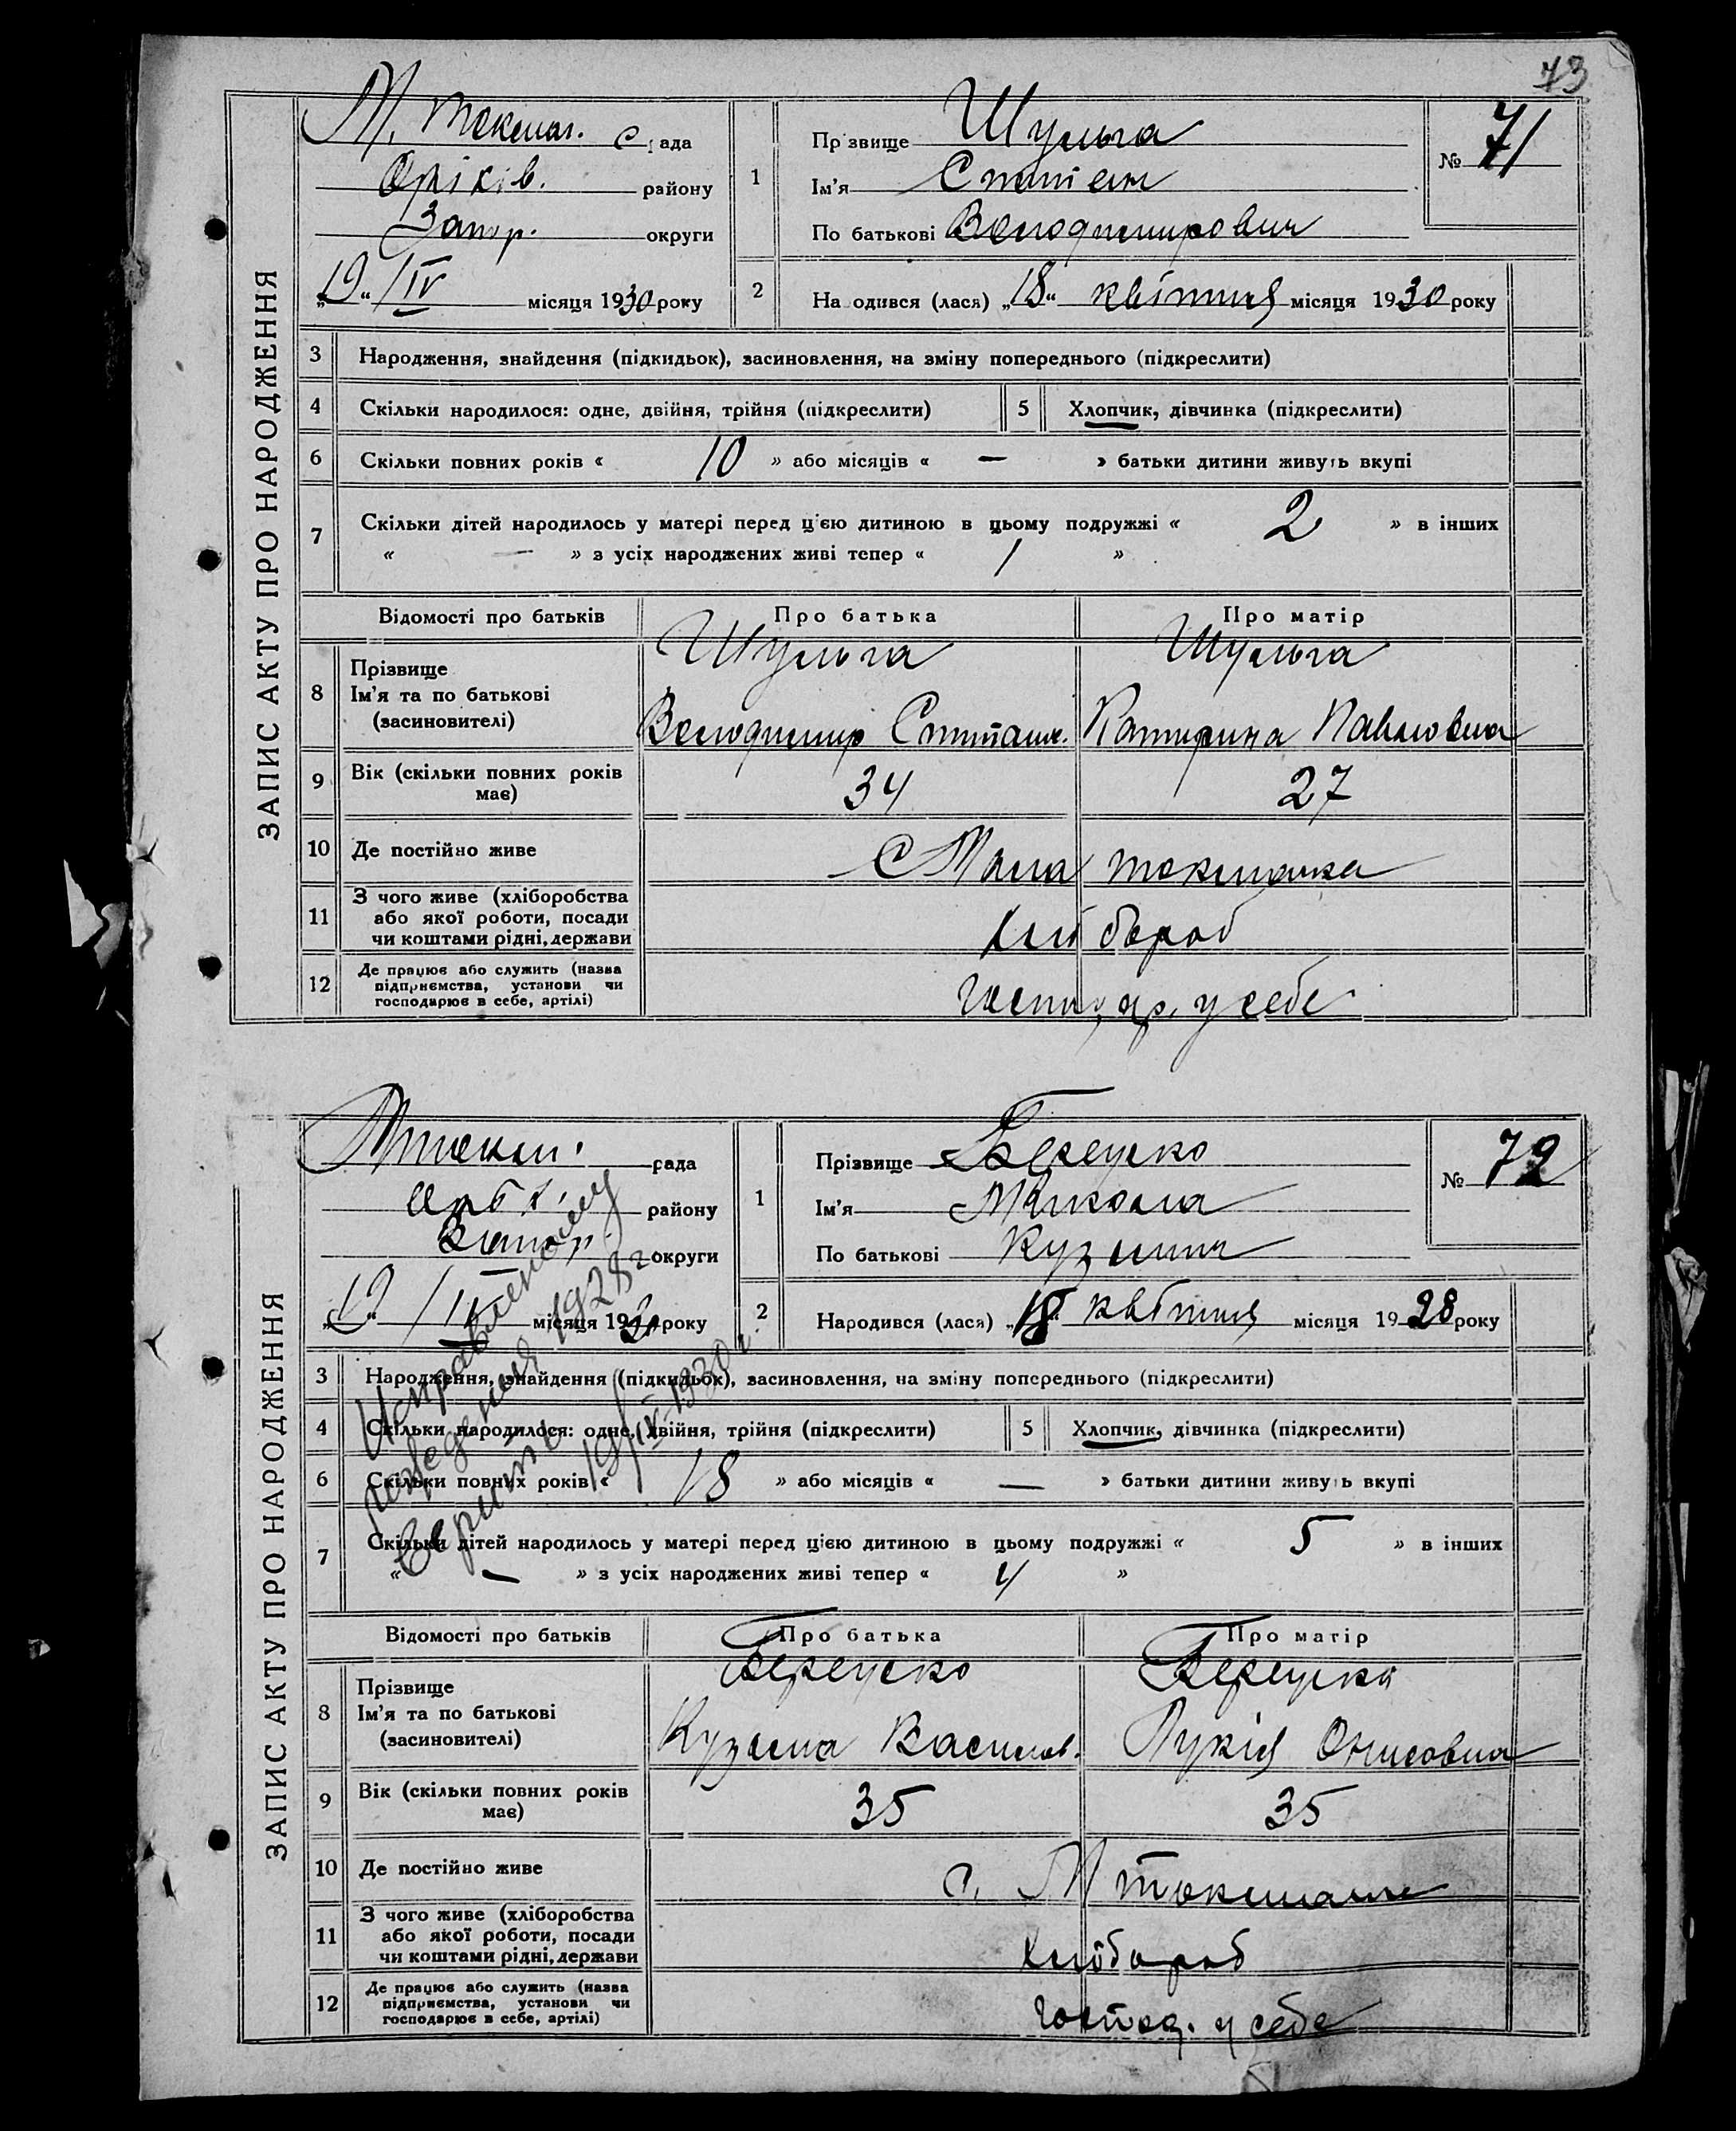 73
ЗАПИС АКТУ ПРО НАРОДЖЕННЯ
М. Токмач. с рада
Оріхів. району
Запор. округи
„19“ /IV місяця 1930 року
1 Прізвище Шульга
Ім’я Степан
По батькові Володимирович
№ 71
2 На одився (лася) „18“ квітня місяця 1930 року
3 Народження, знайдення (підкидьок), засиновлення, на зміну попереднього (підкреслити)
4 Скільки народилося: одне, двійня, трійня (підкреслити) 5 Хлопчик, дівчинка (підкреслити)
6 Скільки повних років « 10 » або місяців « — » батьки дитини живуть вкупі
7 Скільки дітей народилось у матері перед цією дитиною в цьому подружжі « 2 » в інших
« — » з усіх народжених живі тепер « 1 »
Відомості про батьків Про батька Про матір
8 Прізвище Шульга Шульга
Ім’я та по батькові
(засиновителі) Володимир Степан. Катерина Павловна
9 Вік (скільки повних років
має) 34 27
10 Де постійно живе С Мала токмачка
11 З чого живе (хліборобства
або якої роботи, посади
чи коштами рідні, держави хлібороб
12 Де працює або служить (назва
підприємства, установи чи
господарює в себе, артілі) господар. у себе
ЗАПИС АКТУ ПРО НАРОДЖЕННЯ
рада
району
Запор. округи
„19“ /IV місяця 1930 року
1 Прізвище
Ім’я Микола
По батькові Кузьмич
№ 72
2 Народився (лася) „18“ квітня місяця 1928 року
3 Народження, знайдення (підкидьок), засиновлення, на зміну попереднього (підкреслити)
4 Скільки народилося: одне, двійня, трійня (підкреслити) 5 Хлопчик, дівчинка (підкреслити)
6 Скільки повних років « 18 » або місяців « — » батьки дитини живуть вкупі
7 Скільки дітей народилось у матері перед цією дитиною в цьому подружжі « 5 » в інших
« — » з усіх народжених живі тепер « 4 »
Исправленому
рождения 1928 г
верить 19/IV-1930 г.
Відомості про батьків Про батька Про матір
8 Прізвище
Ім’я та по батькові
(засиновителі) Кузьма Василов. Лукія Онисовна
9 Вік (скільки повних років
має) 35 35
10 Де постійно живе с. М токмачка
11 З чого живе (хліборобства
або якої роботи, посади
чи коштами рідні, держави хлібороб
12 Де працює або служить (назва
підприємства, установи чи
господарює в себе, артілі) господ. у себе